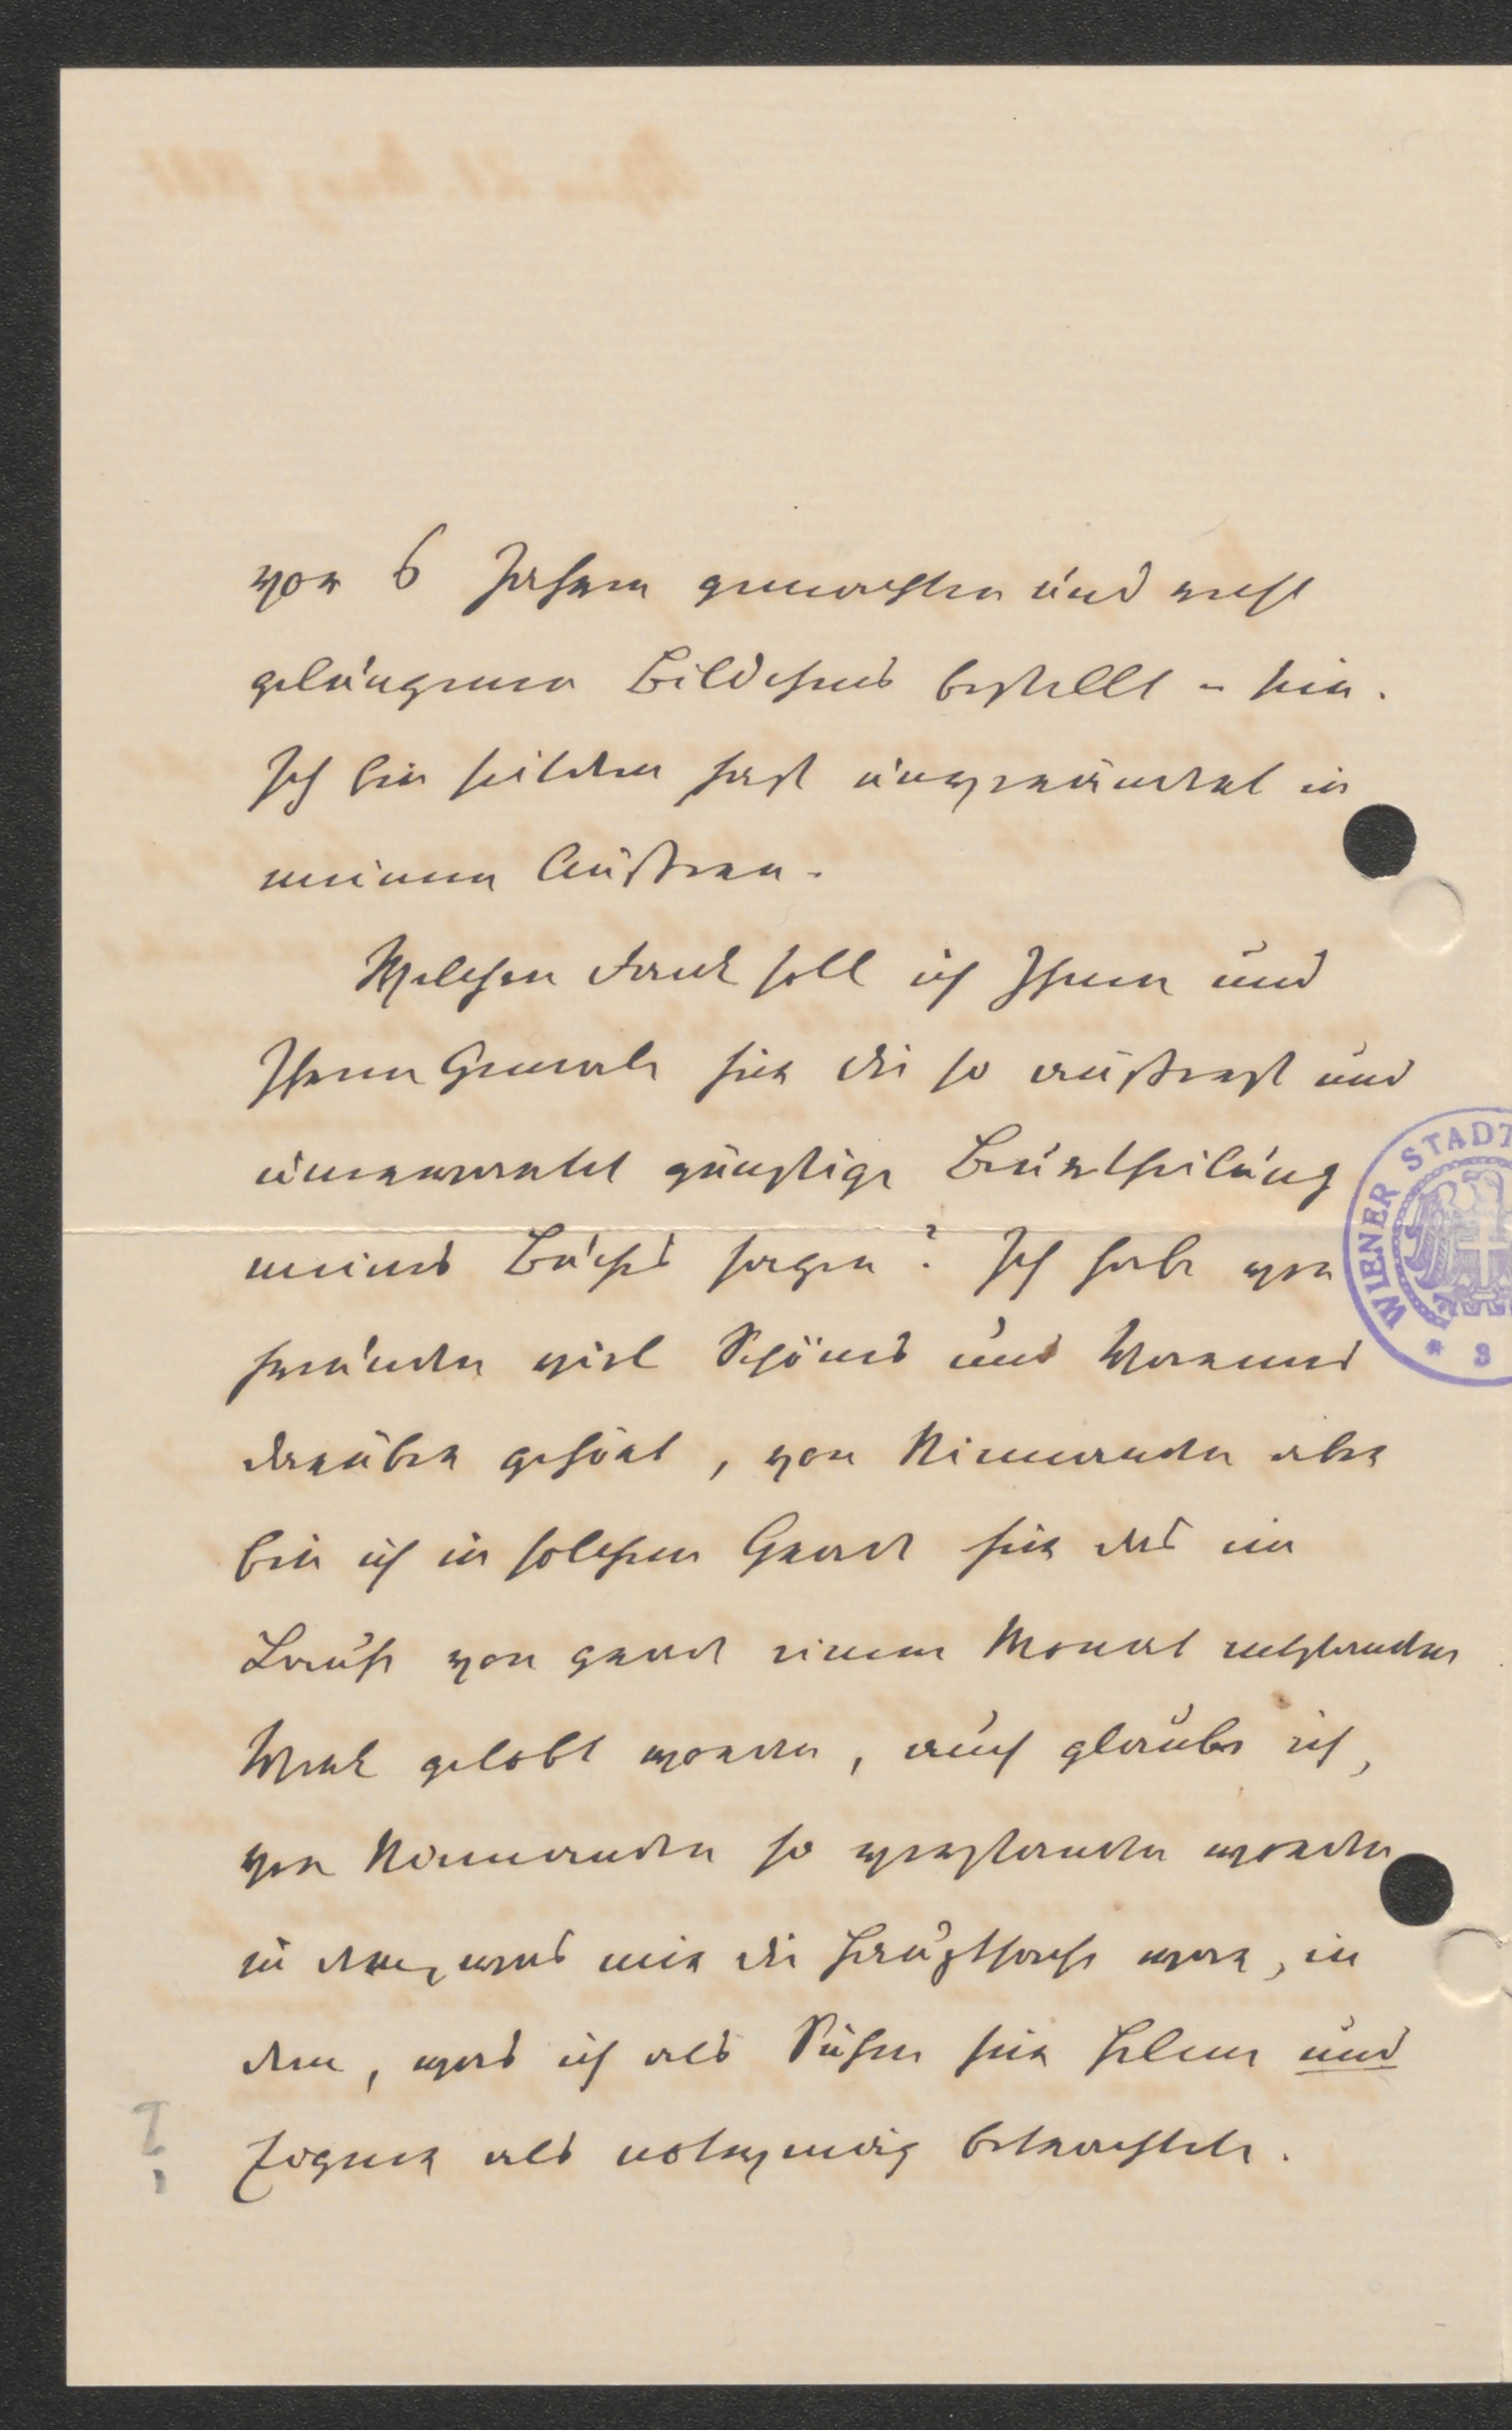 vor 6 Jahren gemachten und recht
gelungenen Bildchens bestellt - hin.
Ich bin seitdem fast unverändert in
meinem Äußeren.
Welchen Dank soll ich Ihnen und
Ihrem Gemale für die so äußerst und
unerwartet günstige Beurtheilung
meines Buches sagen? Ich habe von
Freunden viel Schönes und Warmes
darüber gehört, von Niemanden aber
bin ich in solchem Grade für das im
Laufe von grade einem Monat entstandene
Werk gelobt worden, auch glaube ich,
von Niemanden so verstanden worden
in dem, was mir die Hauptsache war, in
dem, was ich als Sühne für Helene und
Zögner als notwendig betrachtete.
WIENER STADT
* 3